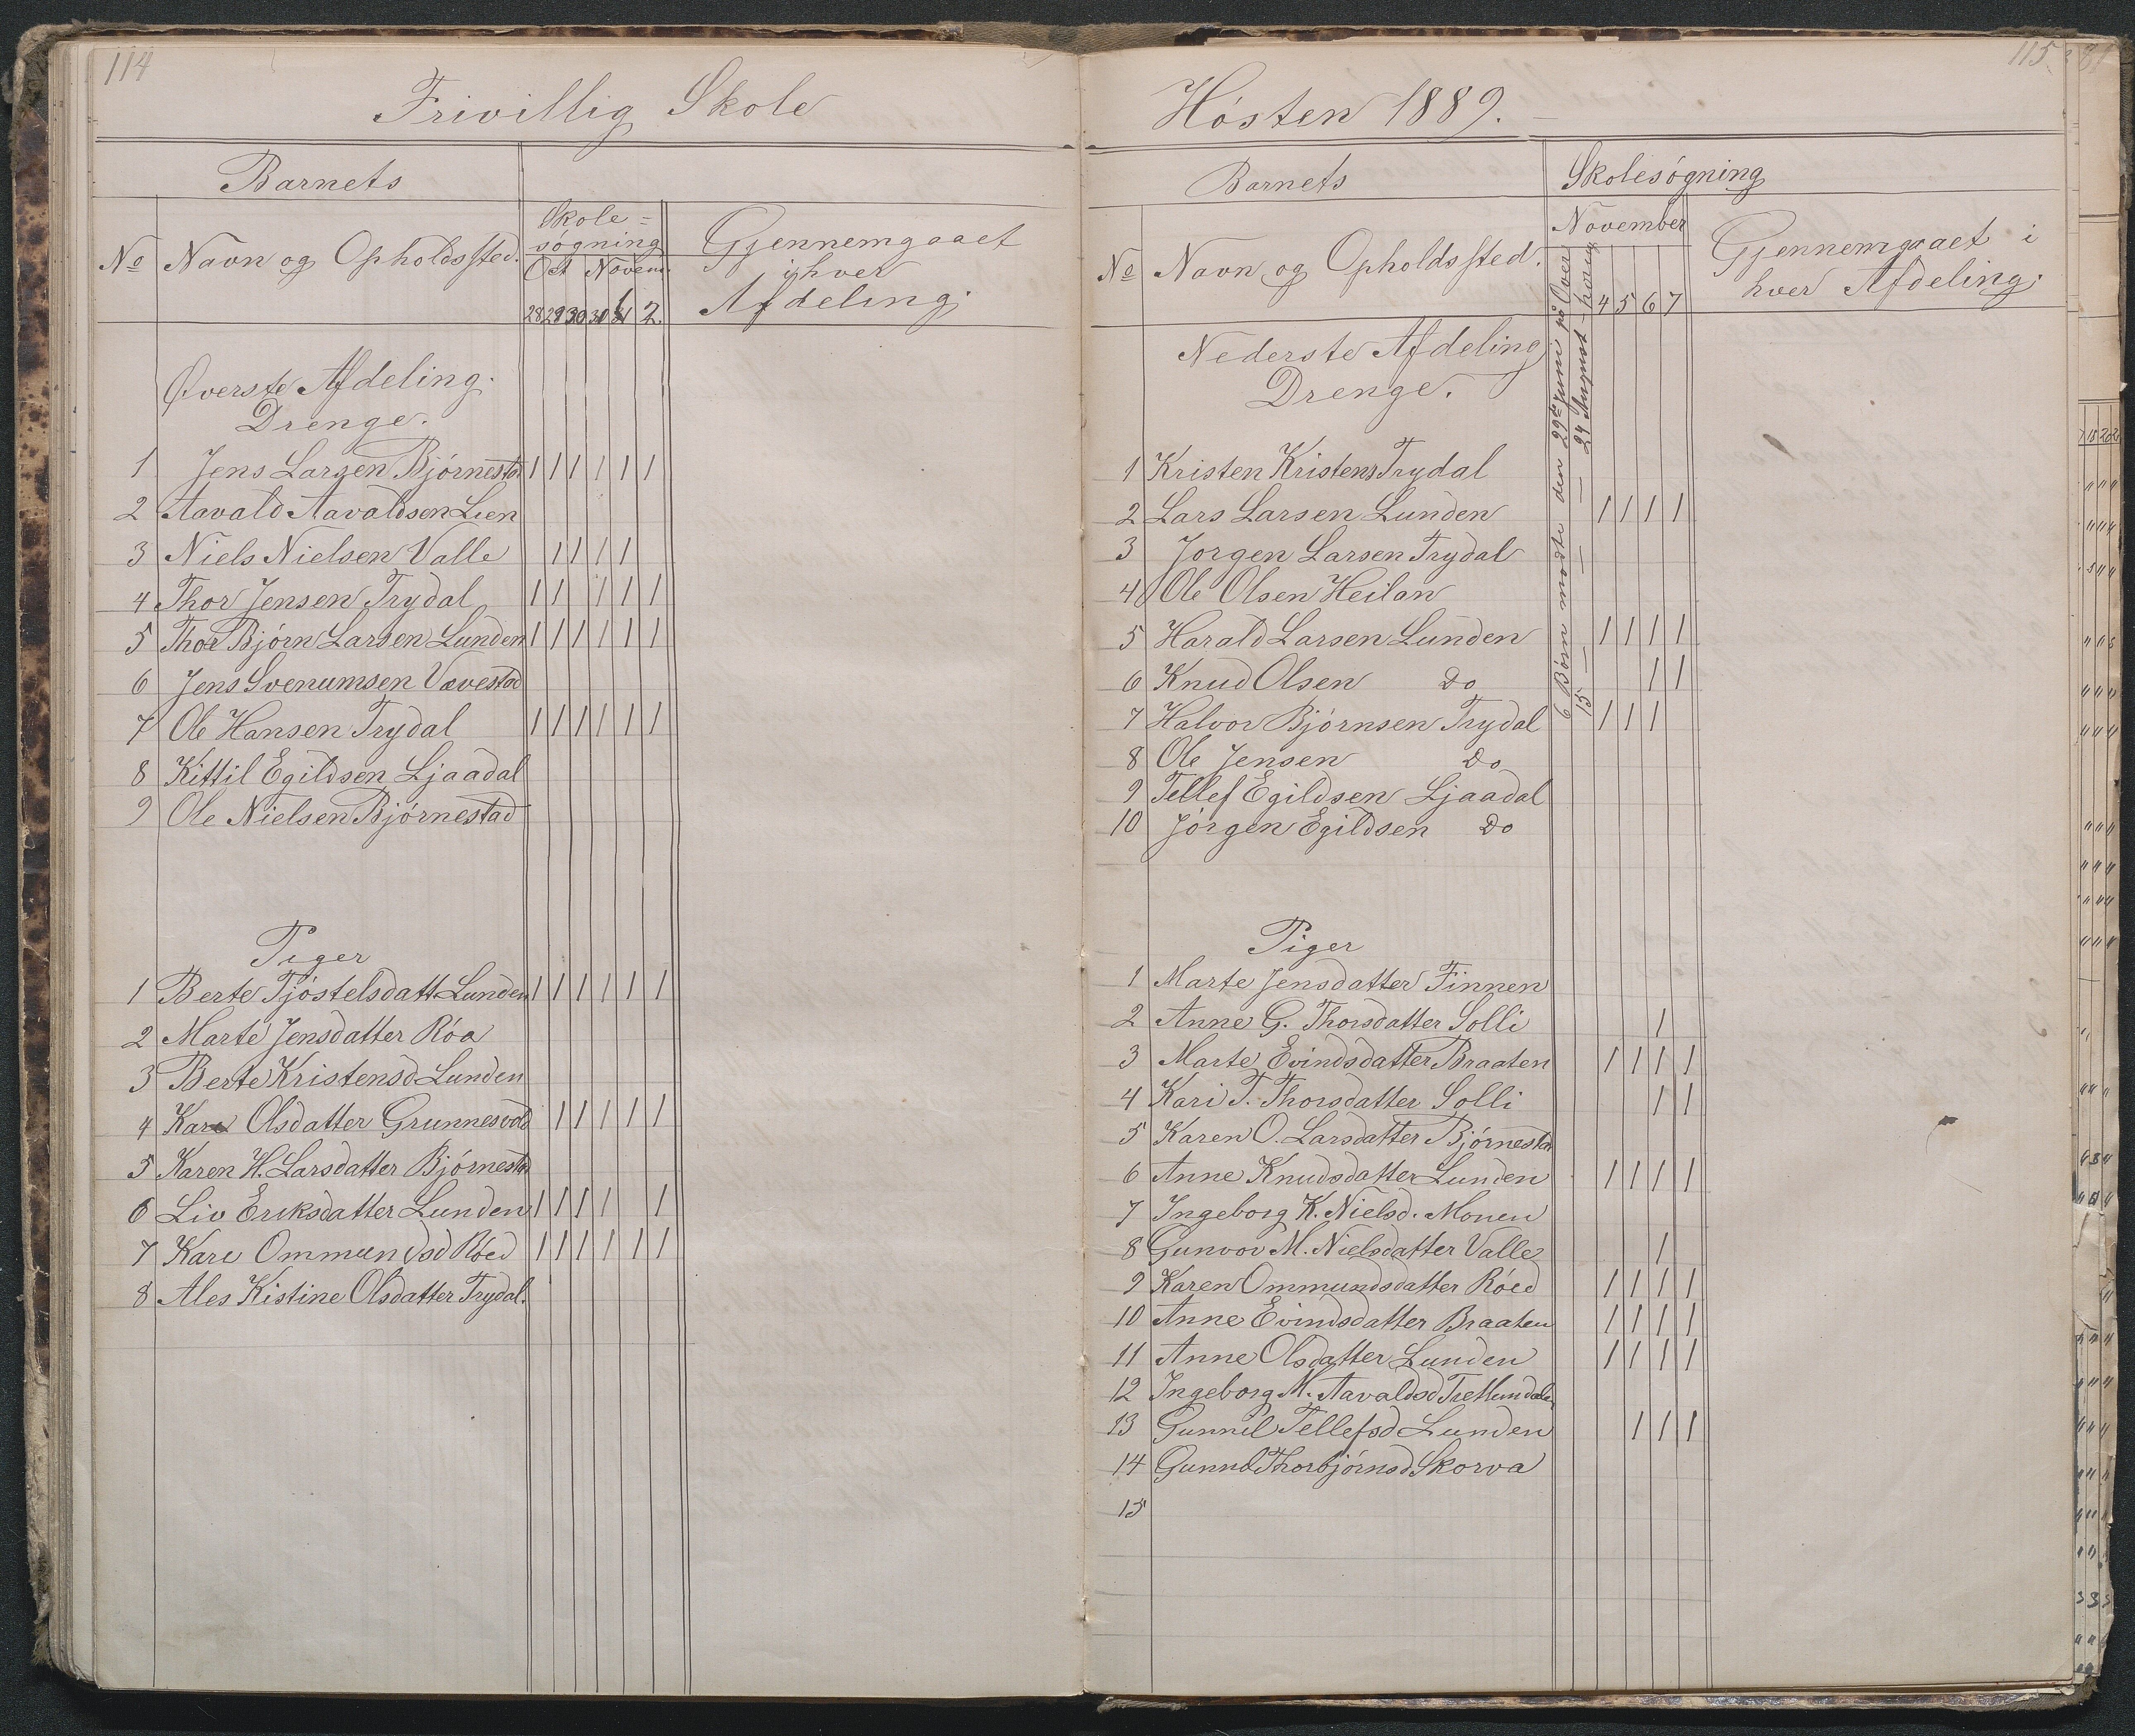 114
Frivillig Skole
Barnets
Skole=
søgning
Gjennemgaaet
i hver
Afdeling.
No Navn og Opholdssted.
Oct Novem.
28 29 30 2.
Øverste Afdeling.
Drenge.
1 Jens Larsen Bjørnestad 1 1 1 1 1 1
2 Aavald Aavaldsen Lien
3 Niels Nielsen Valle 1 1 1 1
4 Thor Jensen Trydal 1 1 1 1 1
5 Thor Bjørn Larsen Lunden 1 1 1 1 1 1
6 Jens Svenumsen Vævestad
7 Ole Hansen Trydal 1 1 1 1 1 1
8 Kittil Egildsen Ljaadal
9 Ole Nielsen Bjørnestad
Piger
1 Berte Tjøstelsdatt Lunden 1 1 1 1 1 1
2 Marte Jensdatter Røa
3 Berte Kristensd Lunden
4 Kari Olsdatter Grunnesvold 1 1 1 1 1
5 Karen H. Larsdatter Bjørnestad
6 Liv Eriksdatter Lunden 1 1 1 1 1
7 Kari Ommundsd Røed 1 1 1 1 1 1
8 Ales Kistine Olsdatter Trydal.
115
Høsten 1889.
Barnets
Skolesøgning
November
No Navn og Opholdssted.
4 5 6 7
Gjennemgaaet i
hver Afdeling.
6 Børn mødte den 29de Juni på Over
15 — — — 24 August
Nederste Afdeling
Drenge.
1 Kristen Kristens Trydal
2 Lars Larsen Lunden 1 1 1 1
3 Jorgen Larsen Trydal
4 Ole Olsen Heilan
5 Harald Larsen Lunden 1 1 1 1
6 Knud Olsen Do 1 1
7 Halvor Bjørnsen Trydal 1 1 1
8 Ole Jensen Do
9 Tellef Egildsen Ljaadal
10 Jørgen Egildsen Do
Piger
1 Marte Jensdatter Finnen
2 Anne G. Thorsdatter Solli 1
3 Marte Evindsdatter Braaten 1 1 1 1
4 Kari T. Thorsdatter Solli 1 1
5 Karen O. Larsdatter Bjørnestad
6 Anne Knudsdatter Lunden 1 1 1 1
7 Ingeborg K. Nielsd. Monen
8 Gunvor M. Nielsdatter Valle 1
9 Karen Ommundsdatter Røed 1 1 1 1
10 Anne Evindsdatter Braaten 1 1 1 1
11 Anne Olsdatter Lunden 1 1 1 1
12 Ingeborg M. Aavaldsd
13 Gunnil Tellefsd Lunden 1 1 1
14 Gunnil Thorbjørnsd Skorva
15